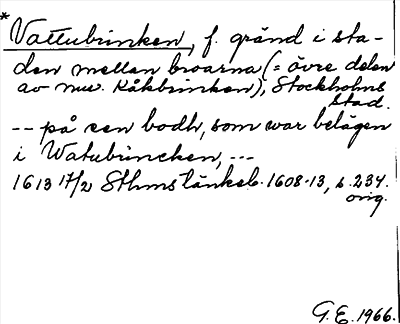 * Vattubrinken, f. gränd i sta-
den mellan broarna (= övre delen
av nuv. Kåkbrinken), Stockholms
stad.
-- på een bodh, som war belägen
i Watubrincken, ---
1613 17/2 Sthms tänkeb. 1608-13, s. 234.
orig.
G. E. 1966.